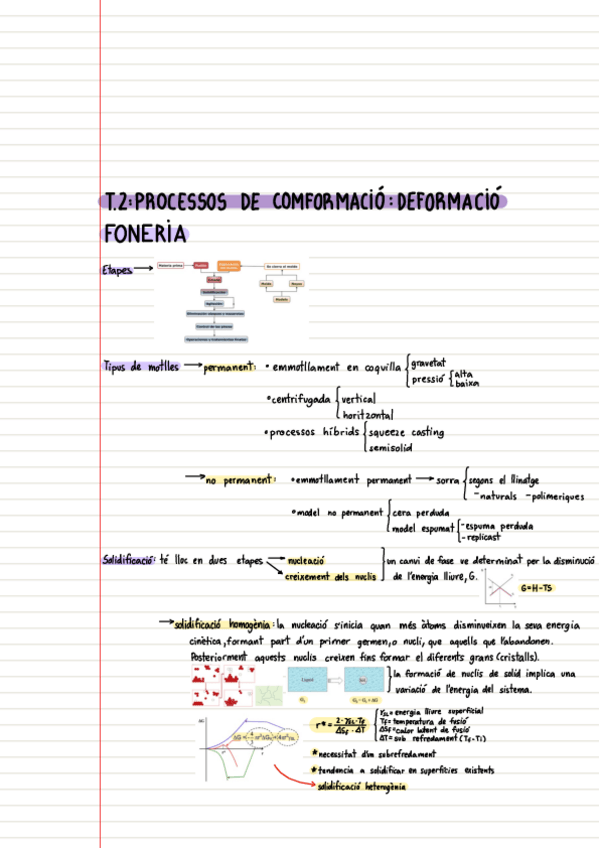 T.2: PROCESSOS DE COMFORMACIÓ: DEFORMACIÓ
FONERIA
Etapes
Materia prima
Fusión
Se cierra el molde
Colada
Molde
Solidificación
Modelo
Control de las piezas
Tipus de motlles → permanent: • emmotllament en coquilla gravetat
pressió alta
baixa
• centrifugada vertical
horitzontal
• processos híbrids squeeze casting
semisolid
→ no permanent: • emmotllament permanent → sorra segons el llinatge
- naturals - polimeriques
• model no permanent cera perduda
model espumat - espuma perduda
- replicast
Solidificació: té lloc en dues etapes → nucleació
creixement dels nuclis
un canvi de fase ve determinat per la disminució
de l'energia lliure, G.
G=H-TS
→ solidificació homogènia: la nucleació s'inicia quan més àtoms disminueixen la seva energia
cinètica, formant part d'un primer germen, o nucli, que aquells que l'abandonen.
Posteriorment aquests nuclis creixen fins formar el diferents grans (cristalls).
Liquid
la formació de nuclis de solid implica una
variació de l'energia del sistema.
ΔG
r* = 2·γSL·Tf / ΔSf·ΔT
γSL = energia lliure superficial
Tf = temperatura de fusió
ΔSf = calor latent de fusió
ΔT = sub refredament (Tf - Ti)
★ necessitat d'un sobrefredament
★ tendencia a solidificar en superfícies existents
solidificació heterogènia